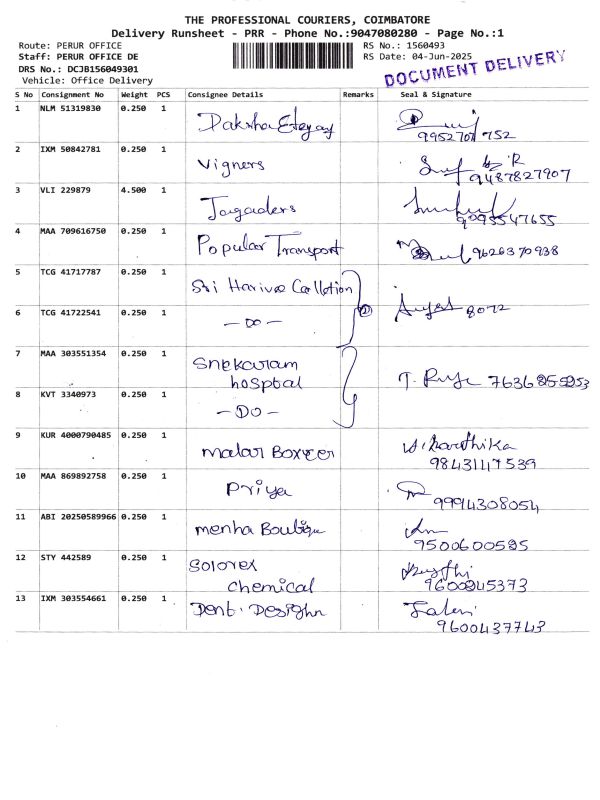 THE PROFESSIONAL COURIERS, COIMBATORE
Delivery Runsheet - PRR - Phone No.:9047080280 - Page No.:1
Route: PERUR OFFICE RS No.: 1560493
Staff: PERUR OFFICE DE RS Date: 04-Jun-2025
DRS No.: DCJB156049301
Vehicle: Office Delivery
DOCUMENT DELIVERY
S No Consignment No Weight PCS Consignee Details Remarks Seal & Signature
1 NLM 51319830 0.250 1
9952707 752
2 IXM 50842781 0.250 1 Vigners
9487827907
3 VLI 229879 4.500 1 Jagaders
9095547655
4 MAA 709616750 0.250 1 Popular Transport 9626370938
5 TCG 41717787 0.250 1 Sri
6 TCG 41722541 0.250 1 -DO- 8072
7 MAA 303551354 0.250 1 Snekaram
hospbal
8 KVT 3340973 0.250 1 -DO-
9 KUR 4000790485 0.250 1 Malar Boxeer Karthika
9843147539
10 MAA 869892758 0.250 1 Priya
9994308054
11 ABI 20250589966 0.250 1 menha Boutique
9500600595
12 STY 442589 0.250 1 Solorex
chemical
13 IXM 303554661 0.250 1 Dent. Desighn
9600437743